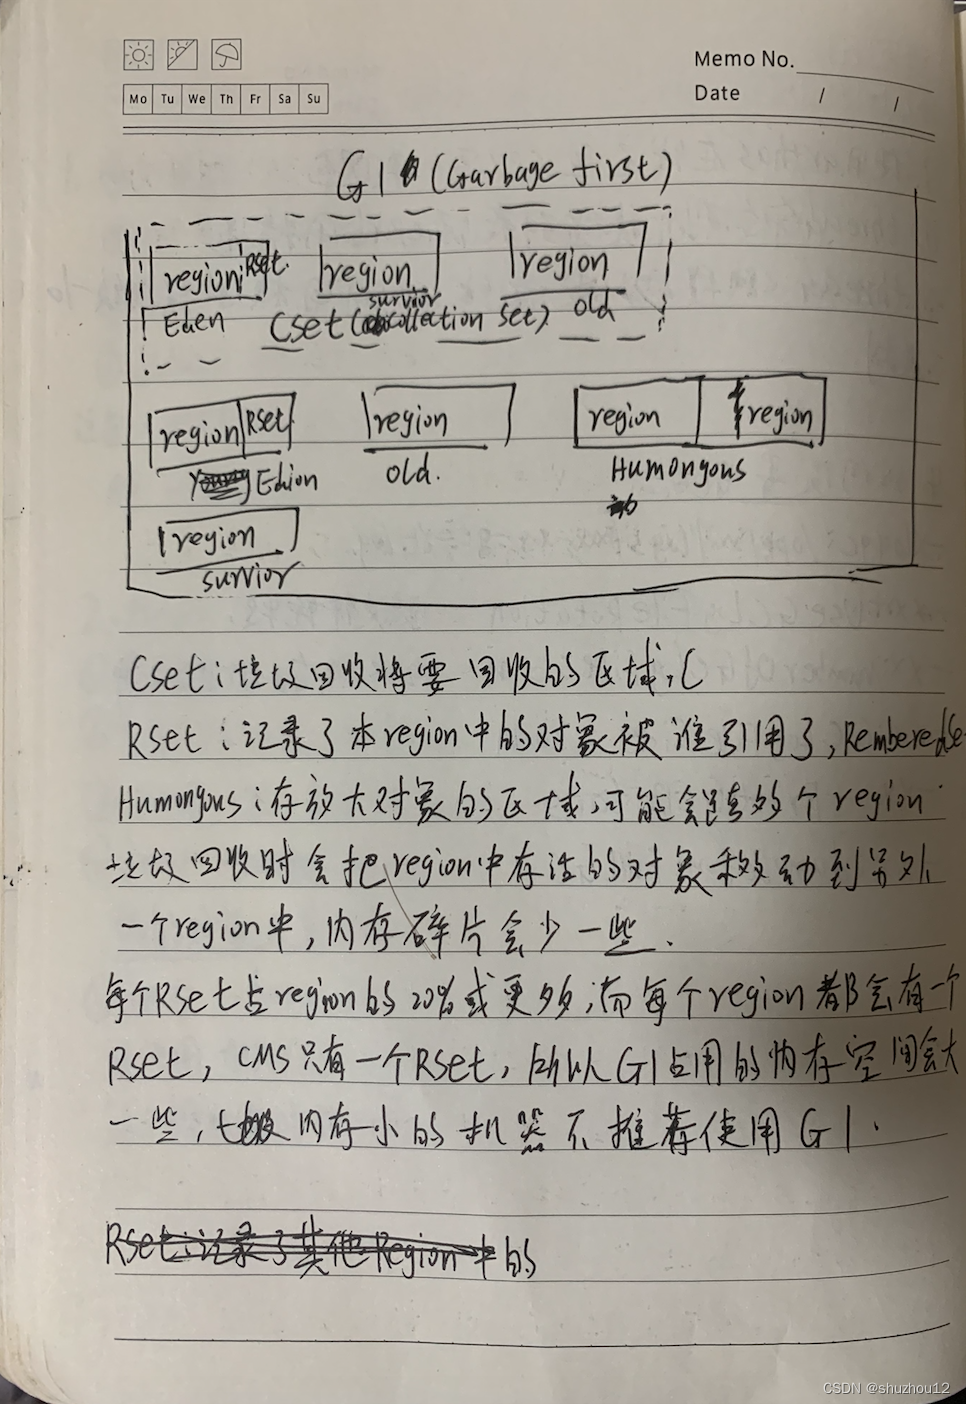 Memo No.
Mo Tu We Th Fr Sa Su
Date / /
G1 (Garbage first)
region Rset. region region
Eden survior old
Cset (collection set)
region Rset region region region
Edion old. Humongous
region
survior
Cset:垃圾回收将要回收的区域,C
Rset:记录了本region中的对象被谁引用了,RemberedSe
Humongous:存放大对象的区域,可能会跨多个region
垃圾回收时会把region中存活的对象移动到另外
一个region中,内存碎片会少一些.
每个Rset占region的20%或更多,而每个region都会有一个
Rset, CMS只有一个Rset,所以G1占用的内存空间会大
一些,内存小的机器不推荐使用G1.
Rset:记录了其他Region中的
CSDN @shuzhou12